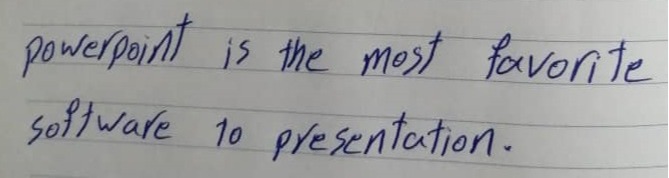 powerpoint is the most favorite
software to presentation.